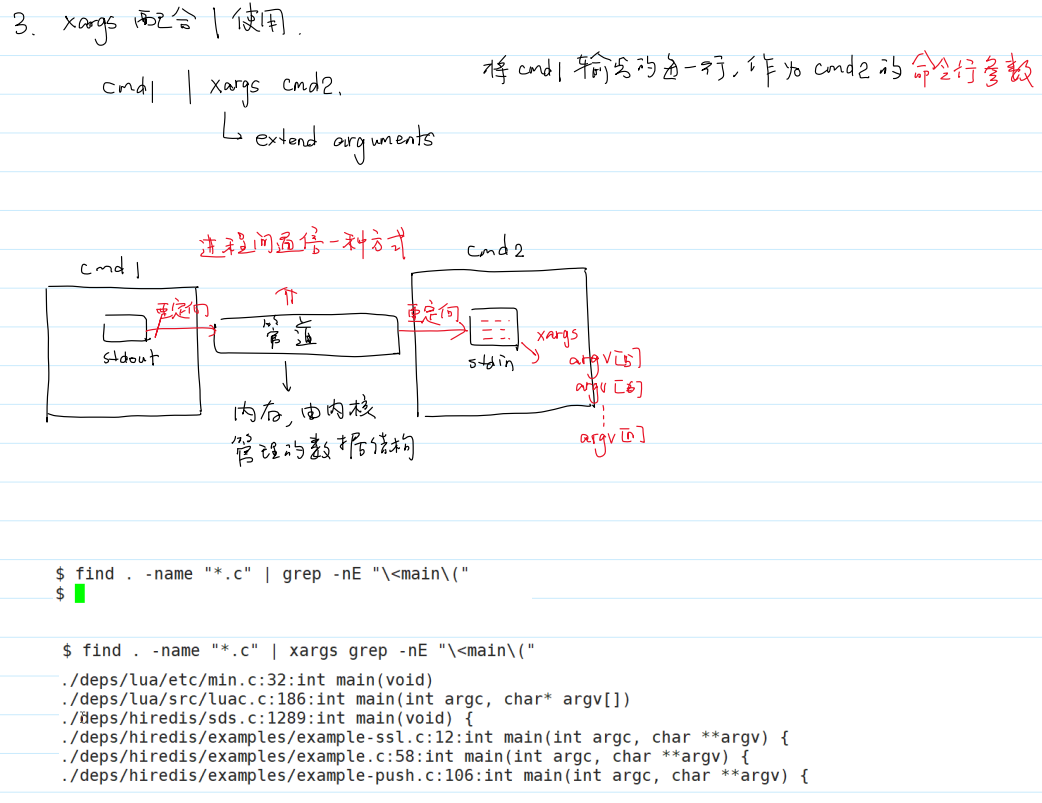 3. xargs 配合 | 使用.
cmd1 | xargs cmd2.
将 cmd1 输出的每一行, 作为 cmd2 的 命令行参数
extend arguments
进程间通信一种方式
cmd1
cmd2
重定向
管道
重定向
stdout
stdin
xargs
argv[5]
argv[6]
argv[n]
内存, 由内核
管理的数据结构
$ find . -name "*.c" | grep -nE "\<main\("
$
$ find . -name "*.c" | xargs grep -nE "\<main\("
./deps/lua/etc/min.c:32:int main(void)
./deps/lua/src/luac.c:186:int main(int argc, char* argv[])
./deps/hiredis/sds.c:1289:int main(void) {
./deps/hiredis/examples/example-ssl.c:12:int main(int argc, char **argv) {
./deps/hiredis/examples/example.c:58:int main(int argc, char **argv) {
./deps/hiredis/examples/example-push.c:106:int main(int argc, char **argv) {